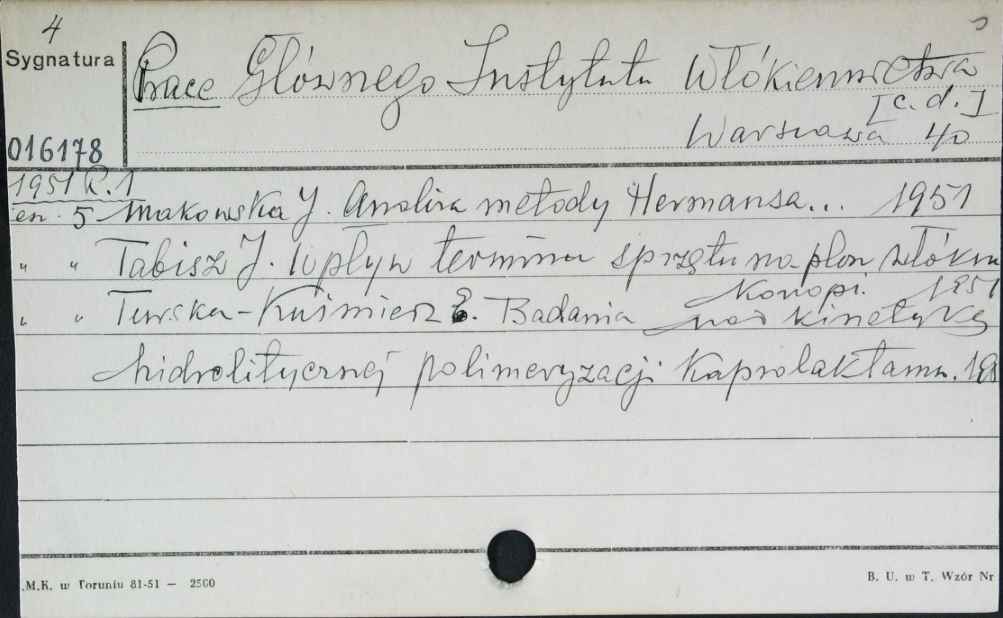 4
Sygnatura
Prace Głównego Instytutu Włókiennictwa
[c. d.]
016178
Warszawa 4°
1951 R. 1
en. 5 Makowska J. Analiza metody Hermansa... 1951
„ „ Tabisz J. Wpływ terminu sprzętu na plon włókna
Konopi. 1951
„ „ Turska-Kuśmierz E. Badania nad kinetyką
hidrolitycznej polimeryzacji Kaprolaktamu. 1951
.M.K. w Toruniu 81-51 — 2500
B. U. w T. Wzór Nr